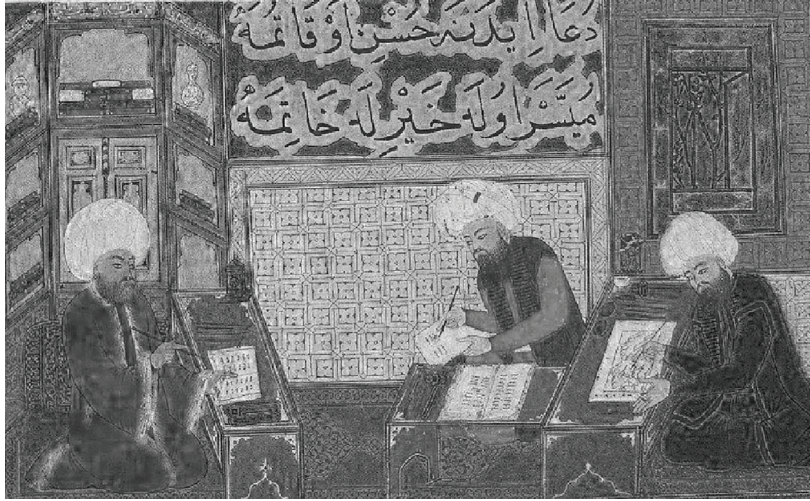 دُعَا اِيدَنَه حُسْنِ اَوْقَاتِمَهْ
مُيَسَّرْ اُولَه خَيْرِلَه خَاتِمَهْ